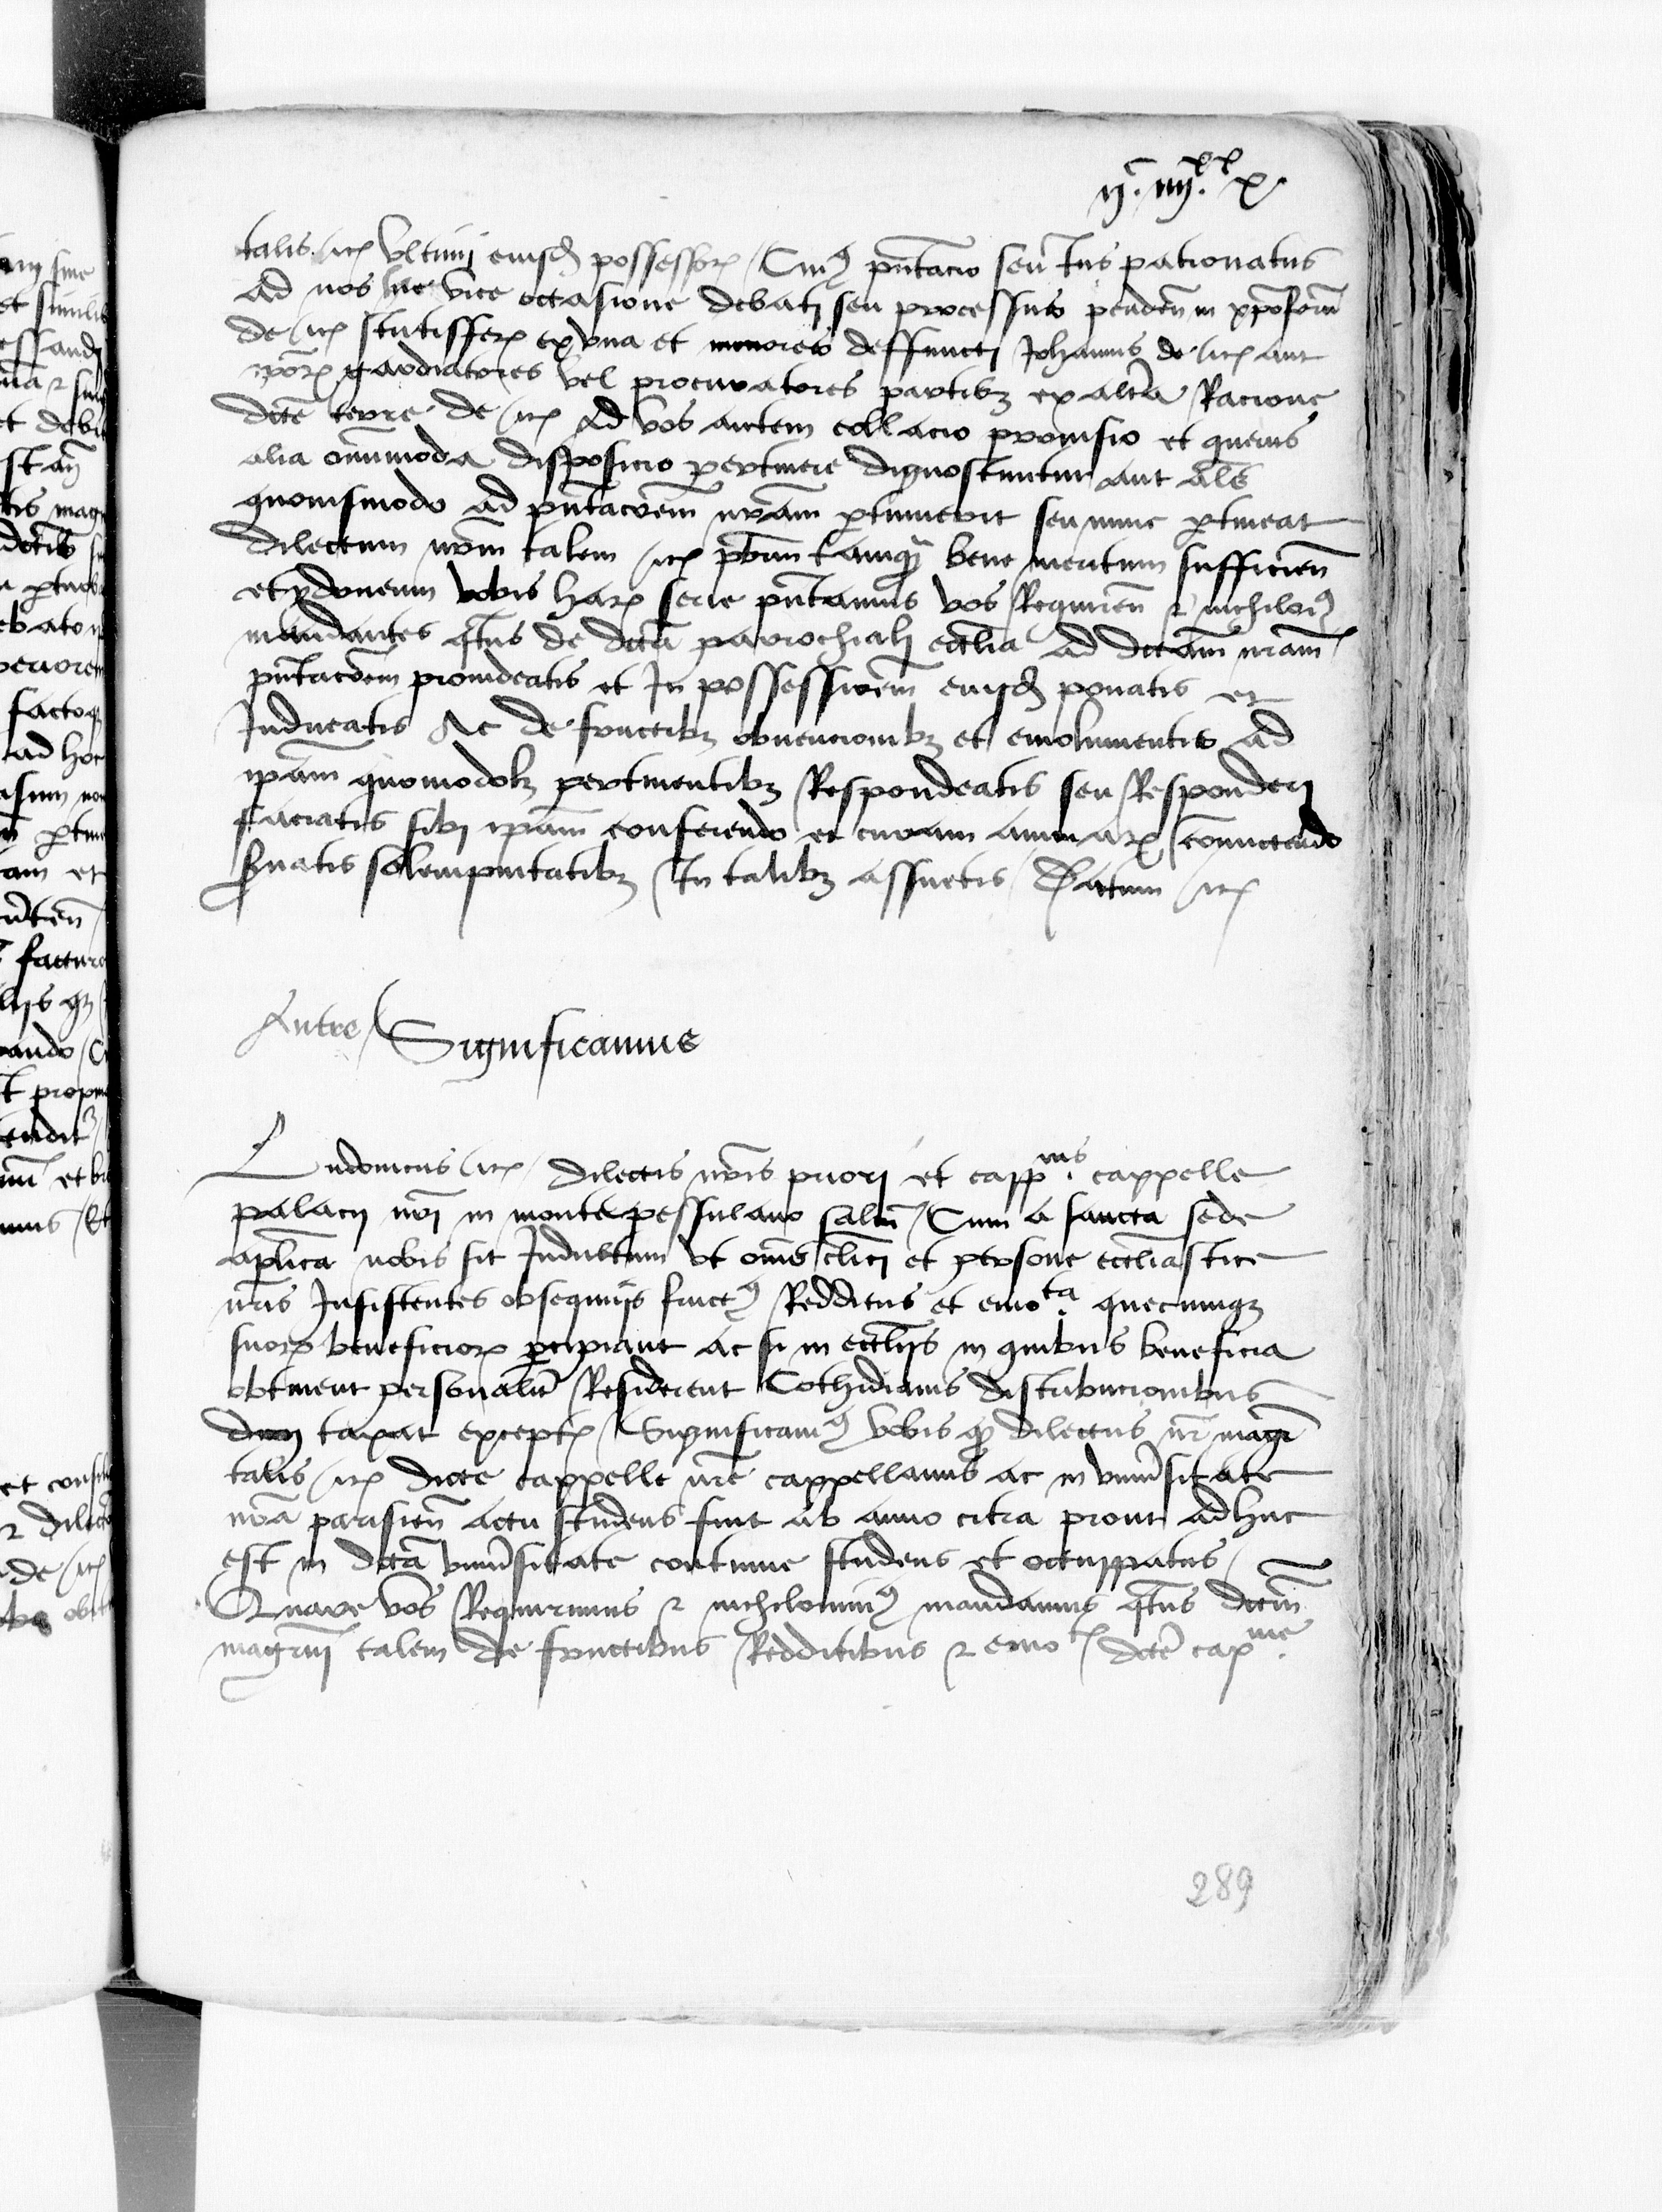 ijᶜ. iiijˣˣ x.
talis etc ultimi eiusd possessor Cuius pntacio seu ius patronatus
ad nos hac vice occasione debati seu processus penden in xpoforum
de etc scutiffer ex una et minores deffuncti Johannis de etc aut
ipor gardiatores vel procuratores partibz ex altera Racione
dcte terre de etc Ad vos autem collacio provisio et quevis
alia omnimoda disposicio pertinere dignoscuntur aut als
quovismodo ad pntacoem nram ptinuerit seu nunc ptineat
dilectum nrm talem etc pbrum tamqz bene meritum sufficien
et ydoneum vobis harz serie pntamus vos Requiren et nichilois
mandantes qtus de dcta parrochiali ecclia ad dctam nram
pntacoem provideatis et In possessionem eiusd ponatis et
Inducatis Ac de fructibz obvencionibz et emolumentis ad
ipam quomodolz pertinentibz Respondeatis seu Responderi
faciatis sibi ipam conferendo et curam animarz comictendo
svatis solempnitatibz In talibz assuetis Datum etc
Autre Significamus
Ludovicus etc dilectis nris priori et capp.ⁿⁱˢ cappelle
palacij nri in montepessulano saltm Cum a sancta sede
aplica nobis sit Indultum ut oms clici et persone ecclesiastice
nris Insistentes obsequijs fruct9 Redditus et emo.ᵗᵃ quecumqz
suorz beneficiorz pcipiant ac si in eccliis in quibus beneficia
obtinent personalit Residerent Cothidianis distribucionibus
dum taxat exceptz Significam9 vobis qd dilectus nr magr
talis etc dicte cappelle nre cappellanus ac in univsitate
nra parisien actu studens fuit ab anno citra prout adhuc
est in dcta univsitate continue studens et occuppatus
Quare vos Requirimus et nichilomin9 mandamus qtus dctm
magrm talem de fructibus Redditibus et emo dcte cap.ⁿⁱᵉ
289